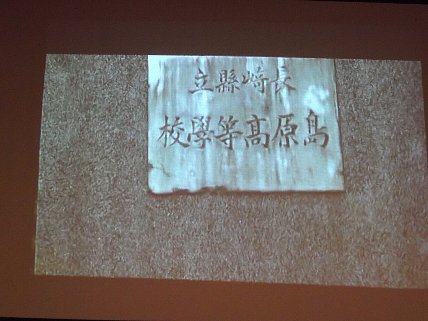 長崎縣立
島原高等學校